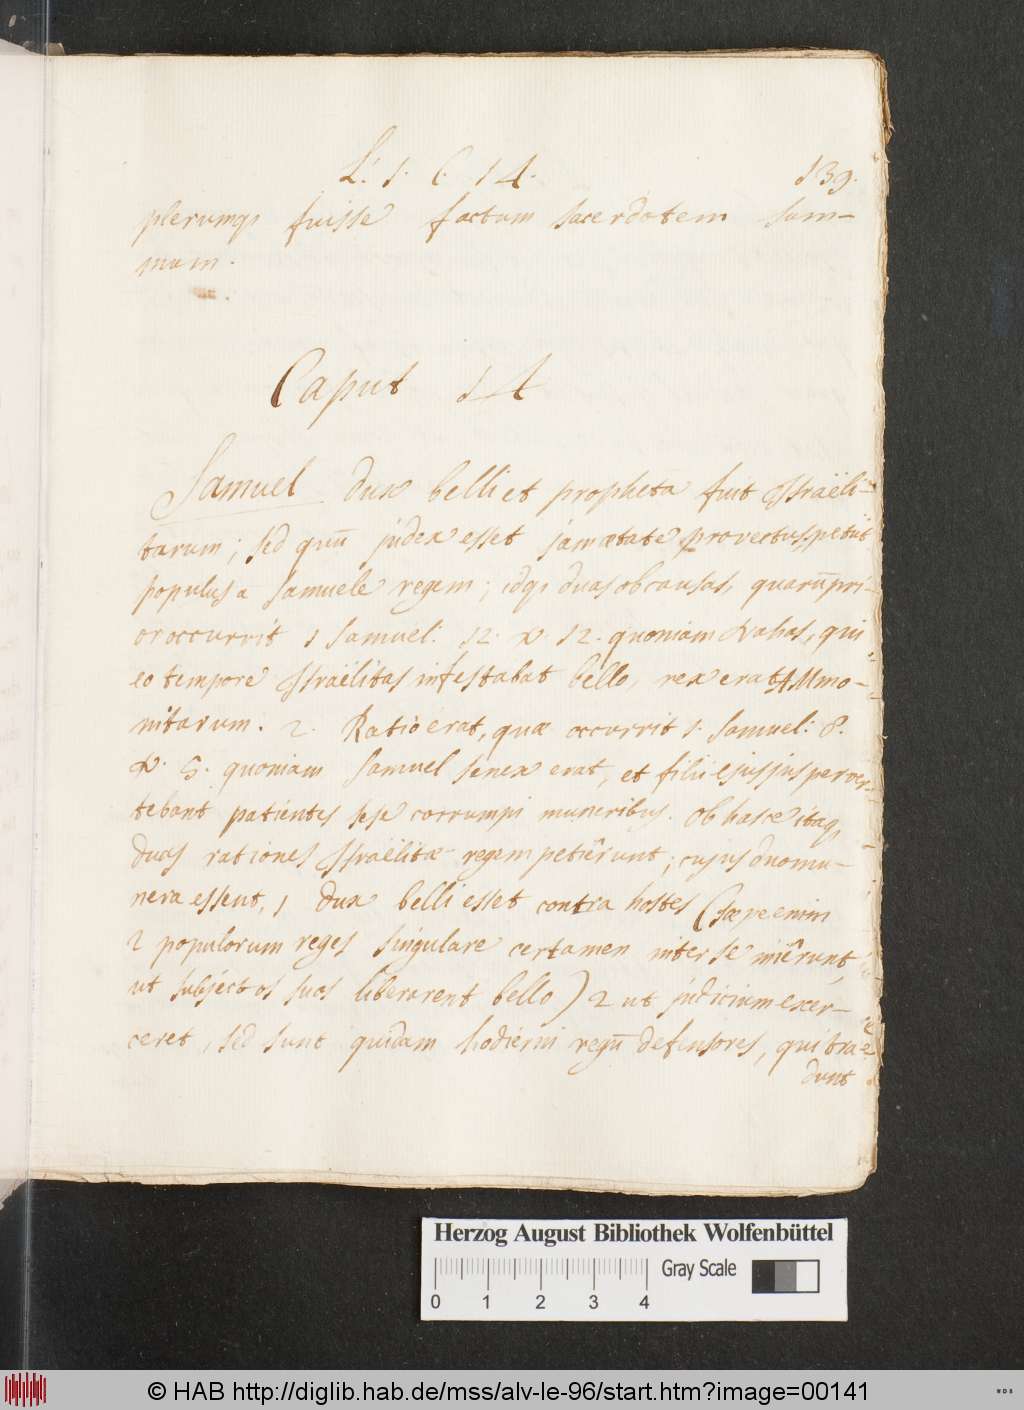 L. 1. C. 14. 139.
plerumq; fuisse factum sacerdotem sum-
mum.
Caput 14
Samuel dux belli et propheta fuit Israëli-
tarum; sed quū judex esset jam ætate provectus, petiit
populus a Samuele regem; idq; duas ob causas, quarū pri-
or occurrit 1 Samuel: 12. v. 12. quoniam Nahas, qui
eo tempore Israëlitas infestabat bello, rex erat Ammo-
nitarum. 2. Ratio erat, quæ occurrit 1. Samuel: 8.
v. 5. quoniam Samuel senex erat, et filii ejus jus perver-
tebant patientes sese corrumpi muneribus. ob hasce itaq,
duas rationes Israëlitæ regem petiêrunt; cujus duo mu-
nera essent, 1 dux belli esset contra hostes (sæpe enim
2 populorum reges singulare certamen inter se iniêrunt,
ut subjectos suos liberarent bello) 2 ut judicium exer-
ceret, sed sunt quidam hodierni regū defensores, qui tra-
dunt
Herzog August Bibliothek Wolfenbüttel
Gray Scale
0 1 2 3 4
© HAB http://diglib.hab.de/mss/alv-le-96/start.htm?image=00141